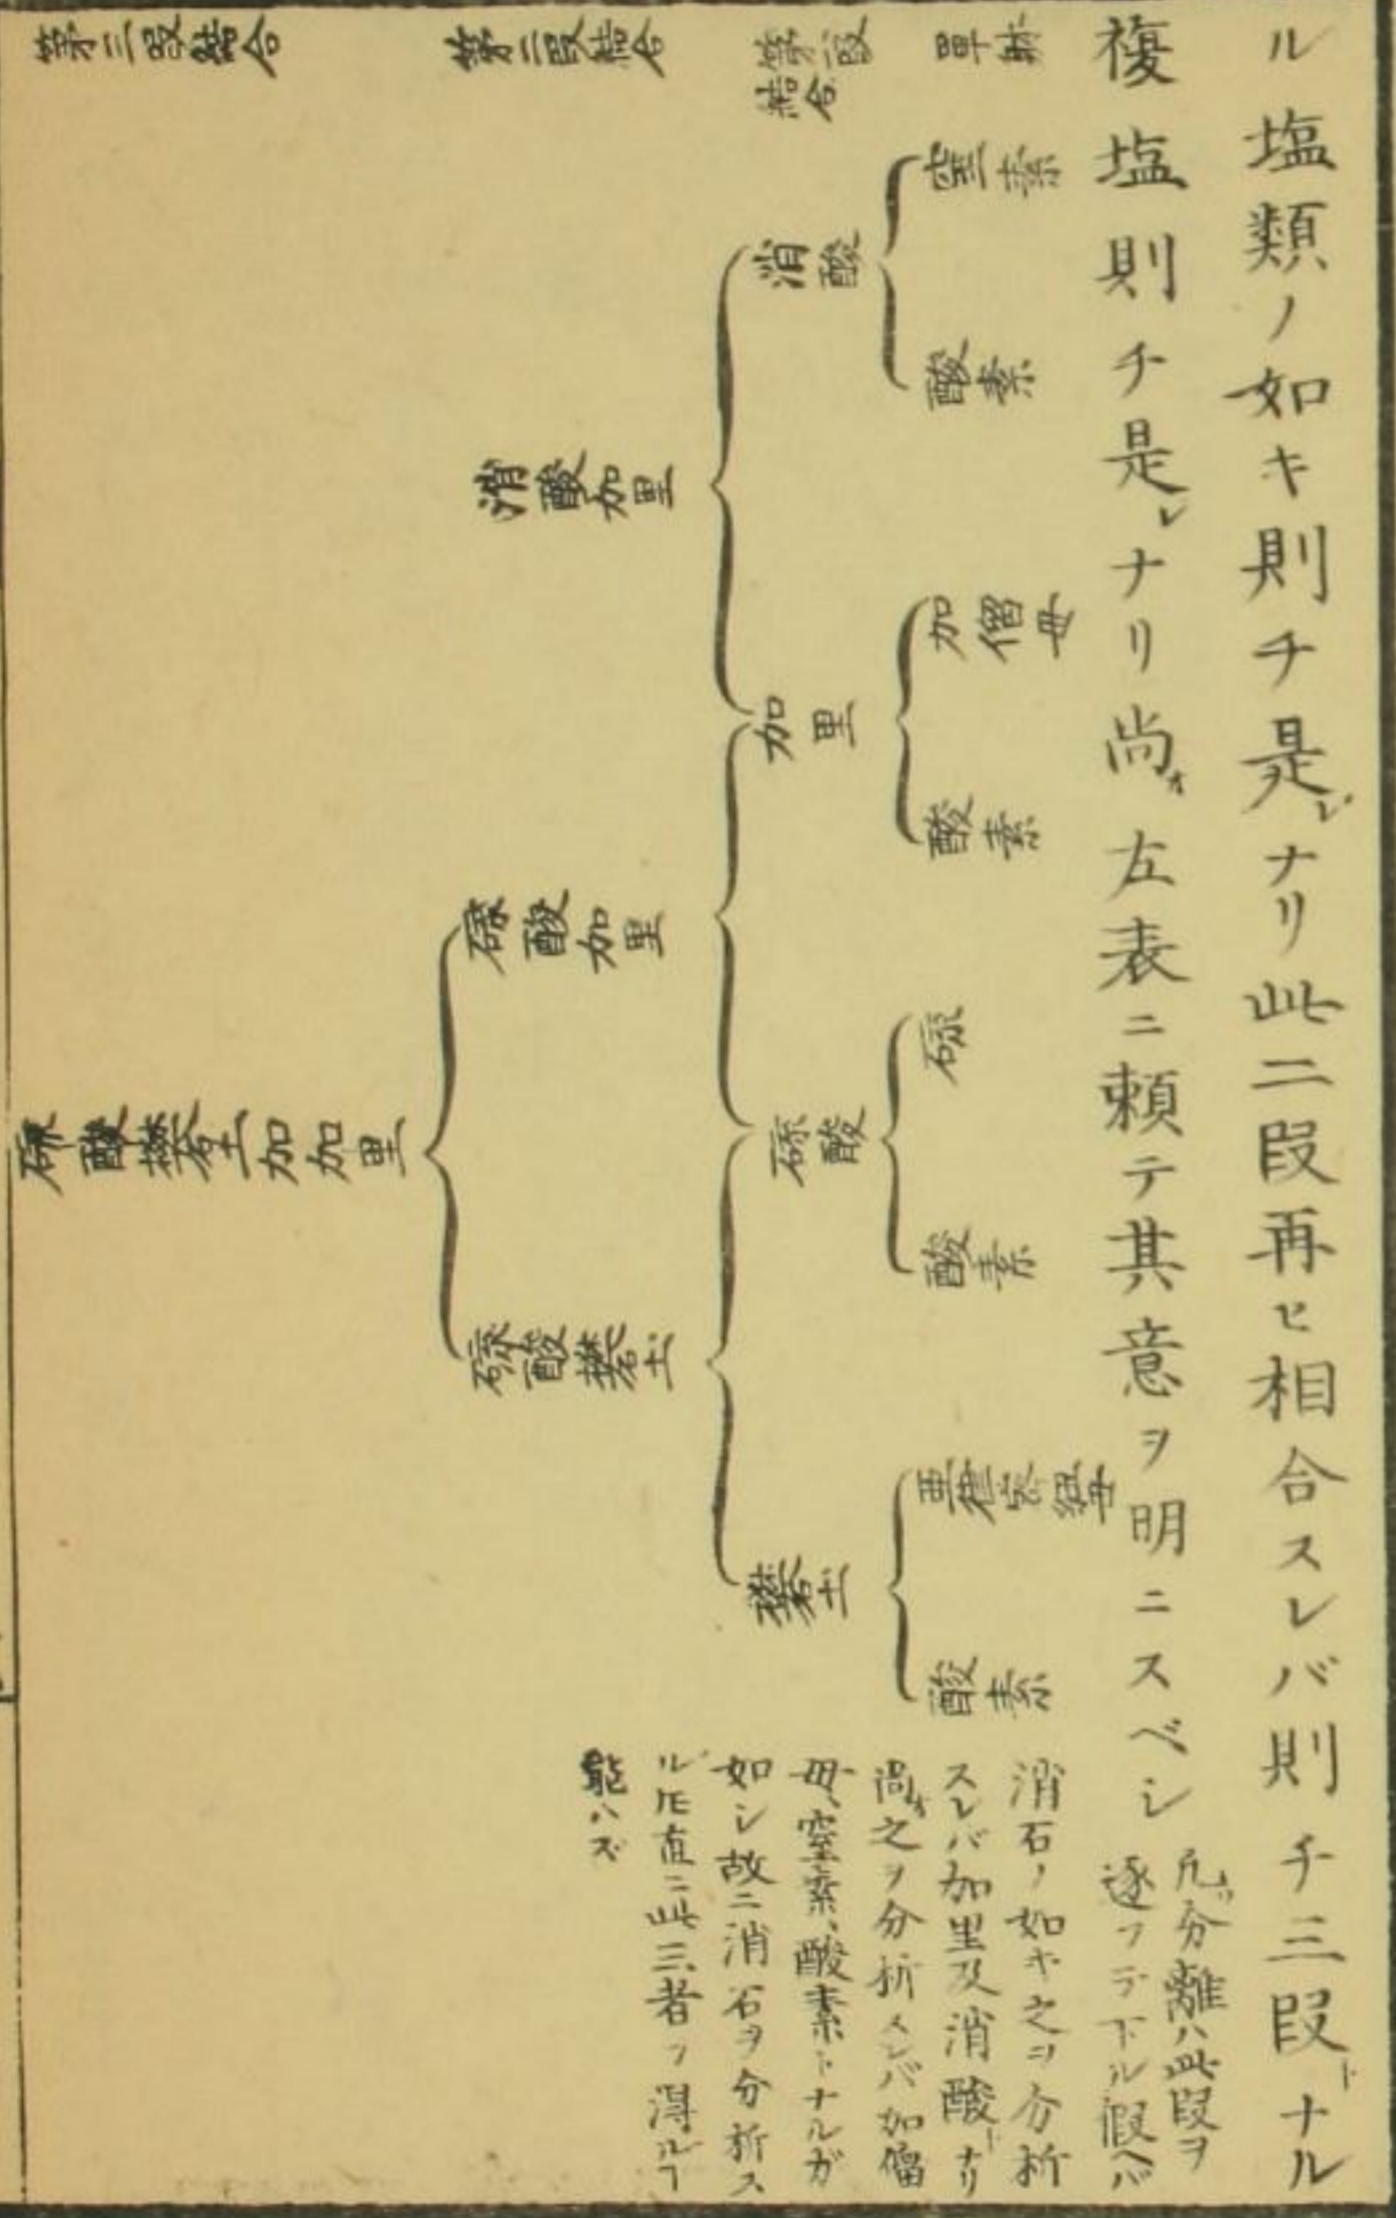 ル塩類ノ如キ則チ是レナリ此二段再ヒ相合スレバ則チ三段トナル
複塩則チ是レナリ尚オ左表ニ頼テ其意ヲ明ニスベシ
凡ソ分離ハ此段ヲ
逐フテ下ル假ヘバ
消石ノ如キ之ヲ分析
スレバ加里及消酸トナリ
尚オ之ヲ分析スレバ加傴
母、窒素、酸素トナルガ
如シ故ニ消石ヲ分析ス
ル𪜈直ニ此三者ヲ得ルヿ
能ハズ
單躰
窒素
酸素
加僧母
酸素
硫
酸素
酸素
第一段
結合
消酸
加里
硫酸
礬土
第二段結合
消酸加里
硫酸加里
硫酸礬土
第三段結合
硫酸礬土加加里